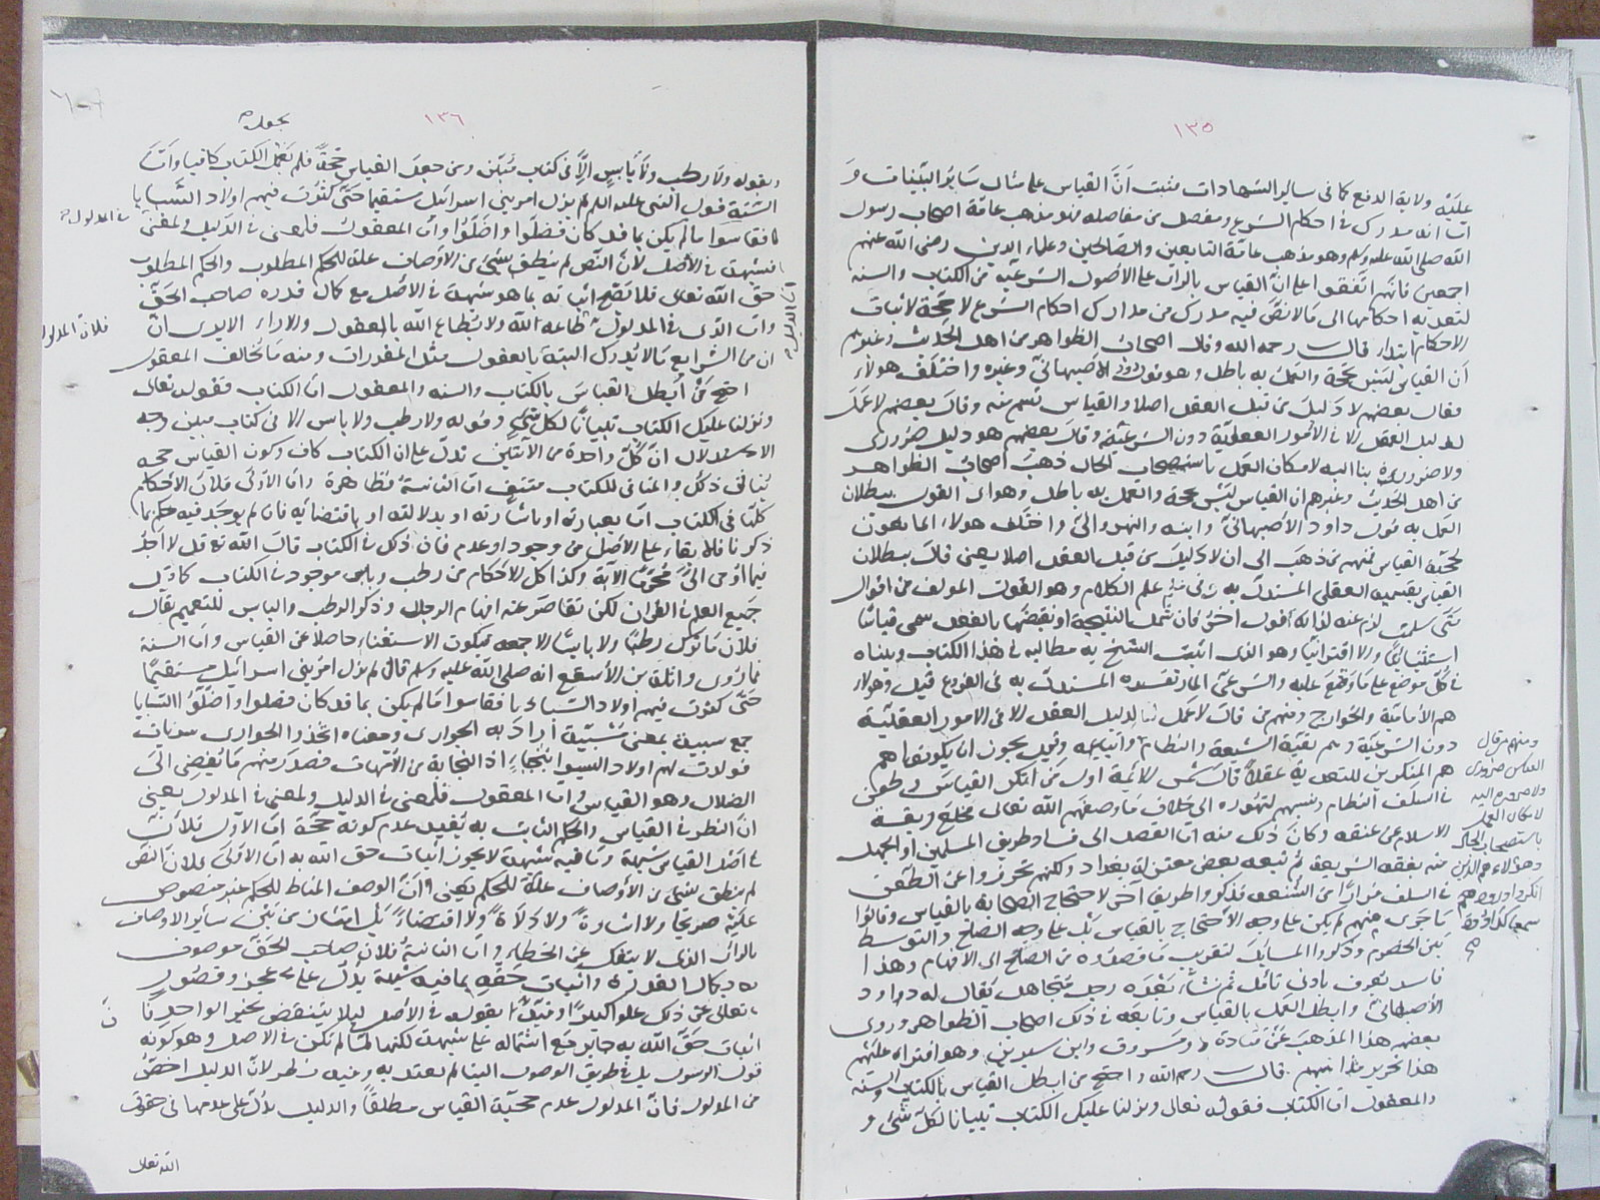 ١٣٥
عليّة ولاية الدفع كما فى ساير الشهادات مثبت انّ القياس على مثال ساير البيّنات و
الله صلى الله عليه وسلم وهو مذهب عامّة التابعين والصّالحين وعلماء الدين رضى الله عنهم
اجمعين فانّهم اتّفقوا على انّ القياس بالراى على الاصول الشرعيّة من الكتاب والسنه
لتعديه احكامها الى ما لا نصّ فيه مدرك من مدارك احكام الشرع لا حجّة لاثبات
الاحكام ابتداء قال رحمه الله وقال اصحاب الظواهر من اهل الحديث وغيرهم
انّ القياس ليس بحجّة والعمل به باطل وهو قول داود الأصبهانىّ وغيره واختلف هولاء
فقال بعضهم لا دليل من قبل العقل اصلا والقياس قسم منه وقال بعضهم لا عمل
لدليل العقل الا فى الامور العقليّة دون الشرعيّة وقال بعضهم هو دليل ضرورى
ولا ضرورة بنا اليه لامكان العمل باستصحاب الحال ذهب اصحاب الظواهر
من اهل الحديث وغيرهم ان القياس ليس بحجة والعمل به باطل وهو اى القول ببطلان
العمل به قول داود الأصبهانىّ وابنه والنهروانىّ واختلف هولاء المانعون
لحجّية القياس فمنهم من ذهب الى ان لا دليل من قبل العقل اصلا يعنى قال ببطلان
القياس بقسميه العقلى المستدلّ به فى علم الكلام وهو القول المولف من اقوال
متى سلمت لزم عنه لذاته قول اخر فان شمل النتيجة او نقيضها بالفعل سمى قياسًا
استثنائيًا والا اقترانيًا
هم الاماميّة والخوارج ومنهم من قال لا عمل لدليل العقل الا فى الامور العقليّة
دون الشرعيّة وهم بقيّة الشيعة والنظام واتباعه وقيل يجوز ان يكونوا هم
هم المنكرين للتعبد به عقلاً قال شمس الائمة اول من انكر القياس وطعن
فى السلف النظام ونسبهم لتهوّره الى خلاف ما وصفهم الله تعالى فخلع ربقة
الاسلام عن عنقه وكان ذلك منه امّا للقصد الى فساد طريق المسلمين او للجهل
منه بفقه الشريعة ثم تبعه بعض معتزلة بغداد ولكنهم تحرزوا عن الطعن
فى السلف فرارًا من الشنعة فذكروا طريقًا اخر لاحتجاج الصحابة بالقياس وقالوا
ما جرى منهم لم يكن على وجه الاحتجاج بالقياس بل على وجه الصلح والتوسّط
بين الخصوم وذكروا المسائل لتقريب ما قصدوه من الصلح الى الافهام وهذا
فاسد يعرف بادنى تامّل ثم نشأ بعده رجل متجاهل يقال له داود
الأصبهانىّ وابطل العمل بالقياس وتابعه فى ذلك اصحاب الظواهر وروى
بعضهم هذا المذهب عن قتادة ومسروق وابن سيرين وهو افتراء عليهم
هذا تحرير مذاهبهم قال رحمه الله واحتج من ابطل القياس بالكتاب والسنه
والمعقول امّا الكتاب فقوله تعالى ونزلنا عليك الكتاب تبيانا لكلّ شئ و
ومنهم من قال
القياس ضرورى
ولا ضرورة اليه
لامكان العمل
باستصحاب الحال
١٣٦
وبقوله ولا رطب ولا يابس الّا فى كتاب مبين ومن جعل القياس حجّةً فلم يجعل الكتاب كافيا وامّا
السّنّة فقول النبى عليه السلام لم يزل امر بنى اسرائيل مستقيما حتى كثرت فيهم اولاد السّبايا
فقاسوا ما لم يكن بما قد كان فضلّوا واضلّوا وامّا المعقول فلمعنى فى الدّليل ولمعنىً
فى المدلول
فشبهة فى الأصل لأنّ النّص لم ينطق بشئ من الأوصاف علّة للحكم المطلوب والحكم المطلوب
حقّ الله تعالى فلا يصحّ اثباته بما هو شبهة فى الاصل مع كمال قدرة صاحب الحقّ
وامّا الذى فى المدلول طاعة الله ولا يطاع الله بالعقول والاراء الا يرى انّ
ان من الشرايع ما لا يدرك البتة بالعقول مثل المقدرات ومنه ما يخالف المعقول
احتج من أبطل القياس بالكتاب والسنه والمعقول امّا الكتاب فقوله تعالى
ونزلنا عليك الكتاب تبيانًا لكل شئ وقوله ولا رطب ولا يابس الا فى كتاب مبين وجه
الاستدلال انّ كلّ واحدة من الآيتين تدلّ على انّ الكتاب كاف وكون القياس حجه
ينافى ذلك والمنافى للكتاب منتف امّا الثانيةُ فظاهرة وامّا الأولى فلانّ الأحكام
كلّها فى الكتاب امّا بعبارته او باشارته او بدلالته او باقتضائه فان لم يوجد فيه
فالابقاء على الأصل من وجود او عدم فان ذلك فى الكتاب قال الله تع قل لا اجد
فيما اوحى الىّ محرّمًا الآية وكذا كل الاحكام من رطب ويابس موجود فى الكتاب كما قيل
جميع العلم فى القران لكن تقاصر عنه افهام الرجال وذكر الرطب واليابس للتعميم يقال
فلان ما ترك رطبًا ولا يابسًا الا جمعه فيكون الاستغناء حاصلا عن القياس وامّا السنة
فما روى واثلة بن الأسقع انه صلى الله عليه وسلم قال لم يزل امر بنى اسرائيل مستقيمًا
حتى كثرت فيهم اولاد السبايا فقاسوا ما لم يكن بما قد كان فضلوا واضلّوا السبايا
جمع سبيّة بمعنى مسبيّة اراد به الجوارى ومعناه اتخذوا الجوارى سريات
فولدت لهم اولاد ليسوا بنجباء اذ النجابة من الأمّهات فصدر منهم ما يفضى الى
الضلال وهو القياس وامّا المعقول فلمعنى فى الدليل ولمعنى فى المدلول يعنى
انّ النظر فى القياس والحكم الثابت به يفيد عدم كونه حجّة امّا الأول فلأنّ
فى اصل القياس شبهة وما فيه شبهة لا يجوز اثبات حق الله به امّا الاولى فلانّ النص
لم ينطق بشئ من الأوصاف علّة للحكم يعنى انّ الوصف المناط للحكم غير منصوص
عليه صريحًا ولا اشارةً ولا دلالةً ولا اقتضاءً بل امتاز من بين سائر الاوصاف
بالرأى الذى لا ينفك عن الخطاء وامّا الثانيةُ فلانّ صاحب الحقّ موصوف
بكمال القدرة واثبات حقّه بما فيه شبهة يدلّ على عجز وقصور
تعالى عن ذلك علوا كبيرًا بقوله فى الأصل ليلا ينتقض بخبر الواحد فانّ
اثبات حقّ الله به جايز مع اشتماله على شبهة لكنها لمّا لم تكن فى الاصل وهو كونه
قول الرسول بل فى طريق الوصول الينا لم يعتد به وفيه نظر لانّ الدليل اخصّ
من المدلول فانّ المدلول عدم حجّية القياس مطلقًا والدليل يدلّ على عدمها فى حقوق
الله تعالى